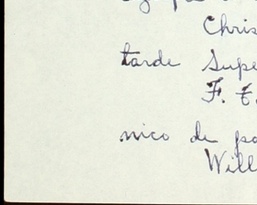 Chris
tarde Supe
F. E.
nico de pa
Will